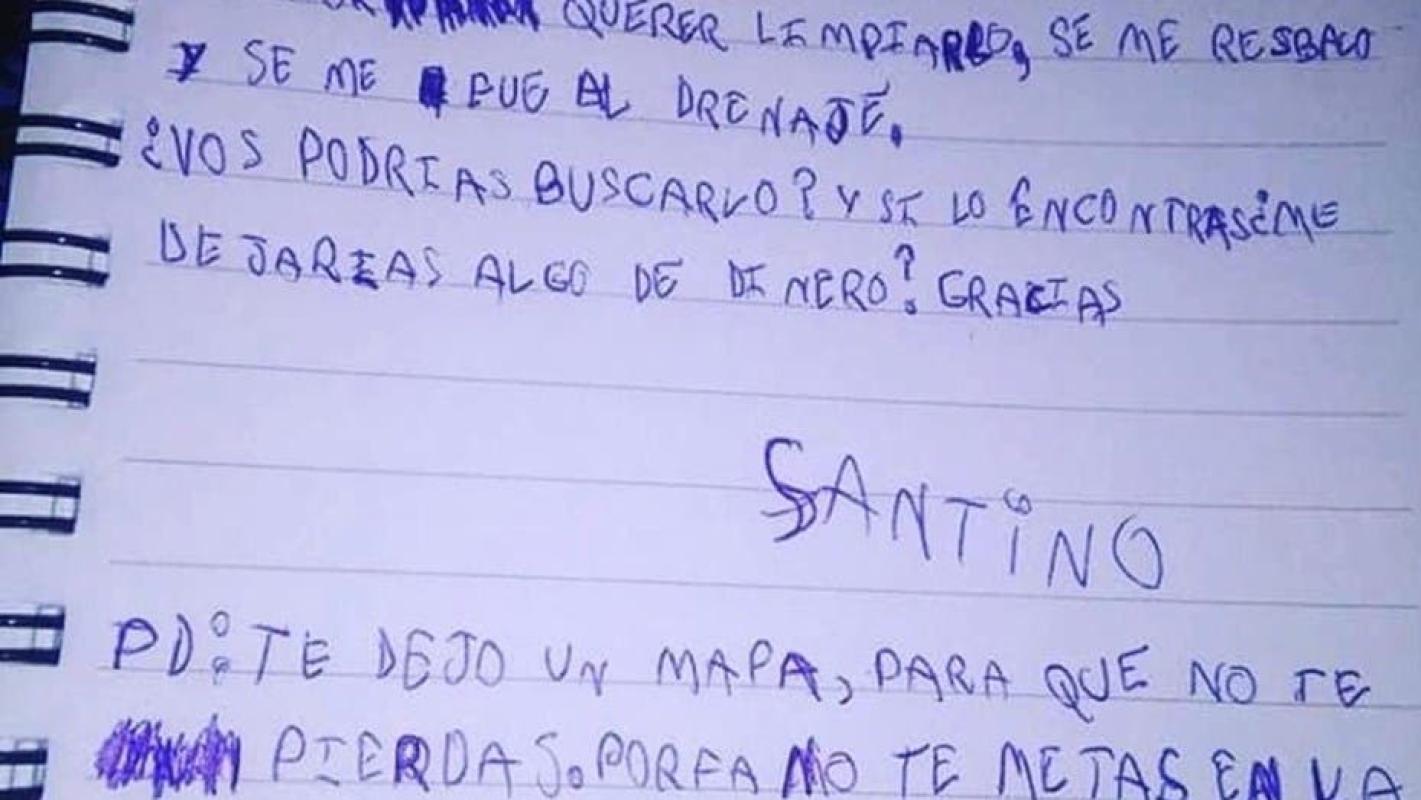 QUERER LIMPIARLO, SE ME RESBALO
Y SE ME FUE AL DRENAJE.
¿VOS PODRIAS BUSCARLO? Y SI LO ENCONTRAS ¿ME
DEJARIAS ALGO DE DINERO? GRACIAS
SANTINO
PD: TE DEJO UN MAPA, PARA QUE NO TE
PIERDAS. PORFA NO TE METAS EN LA